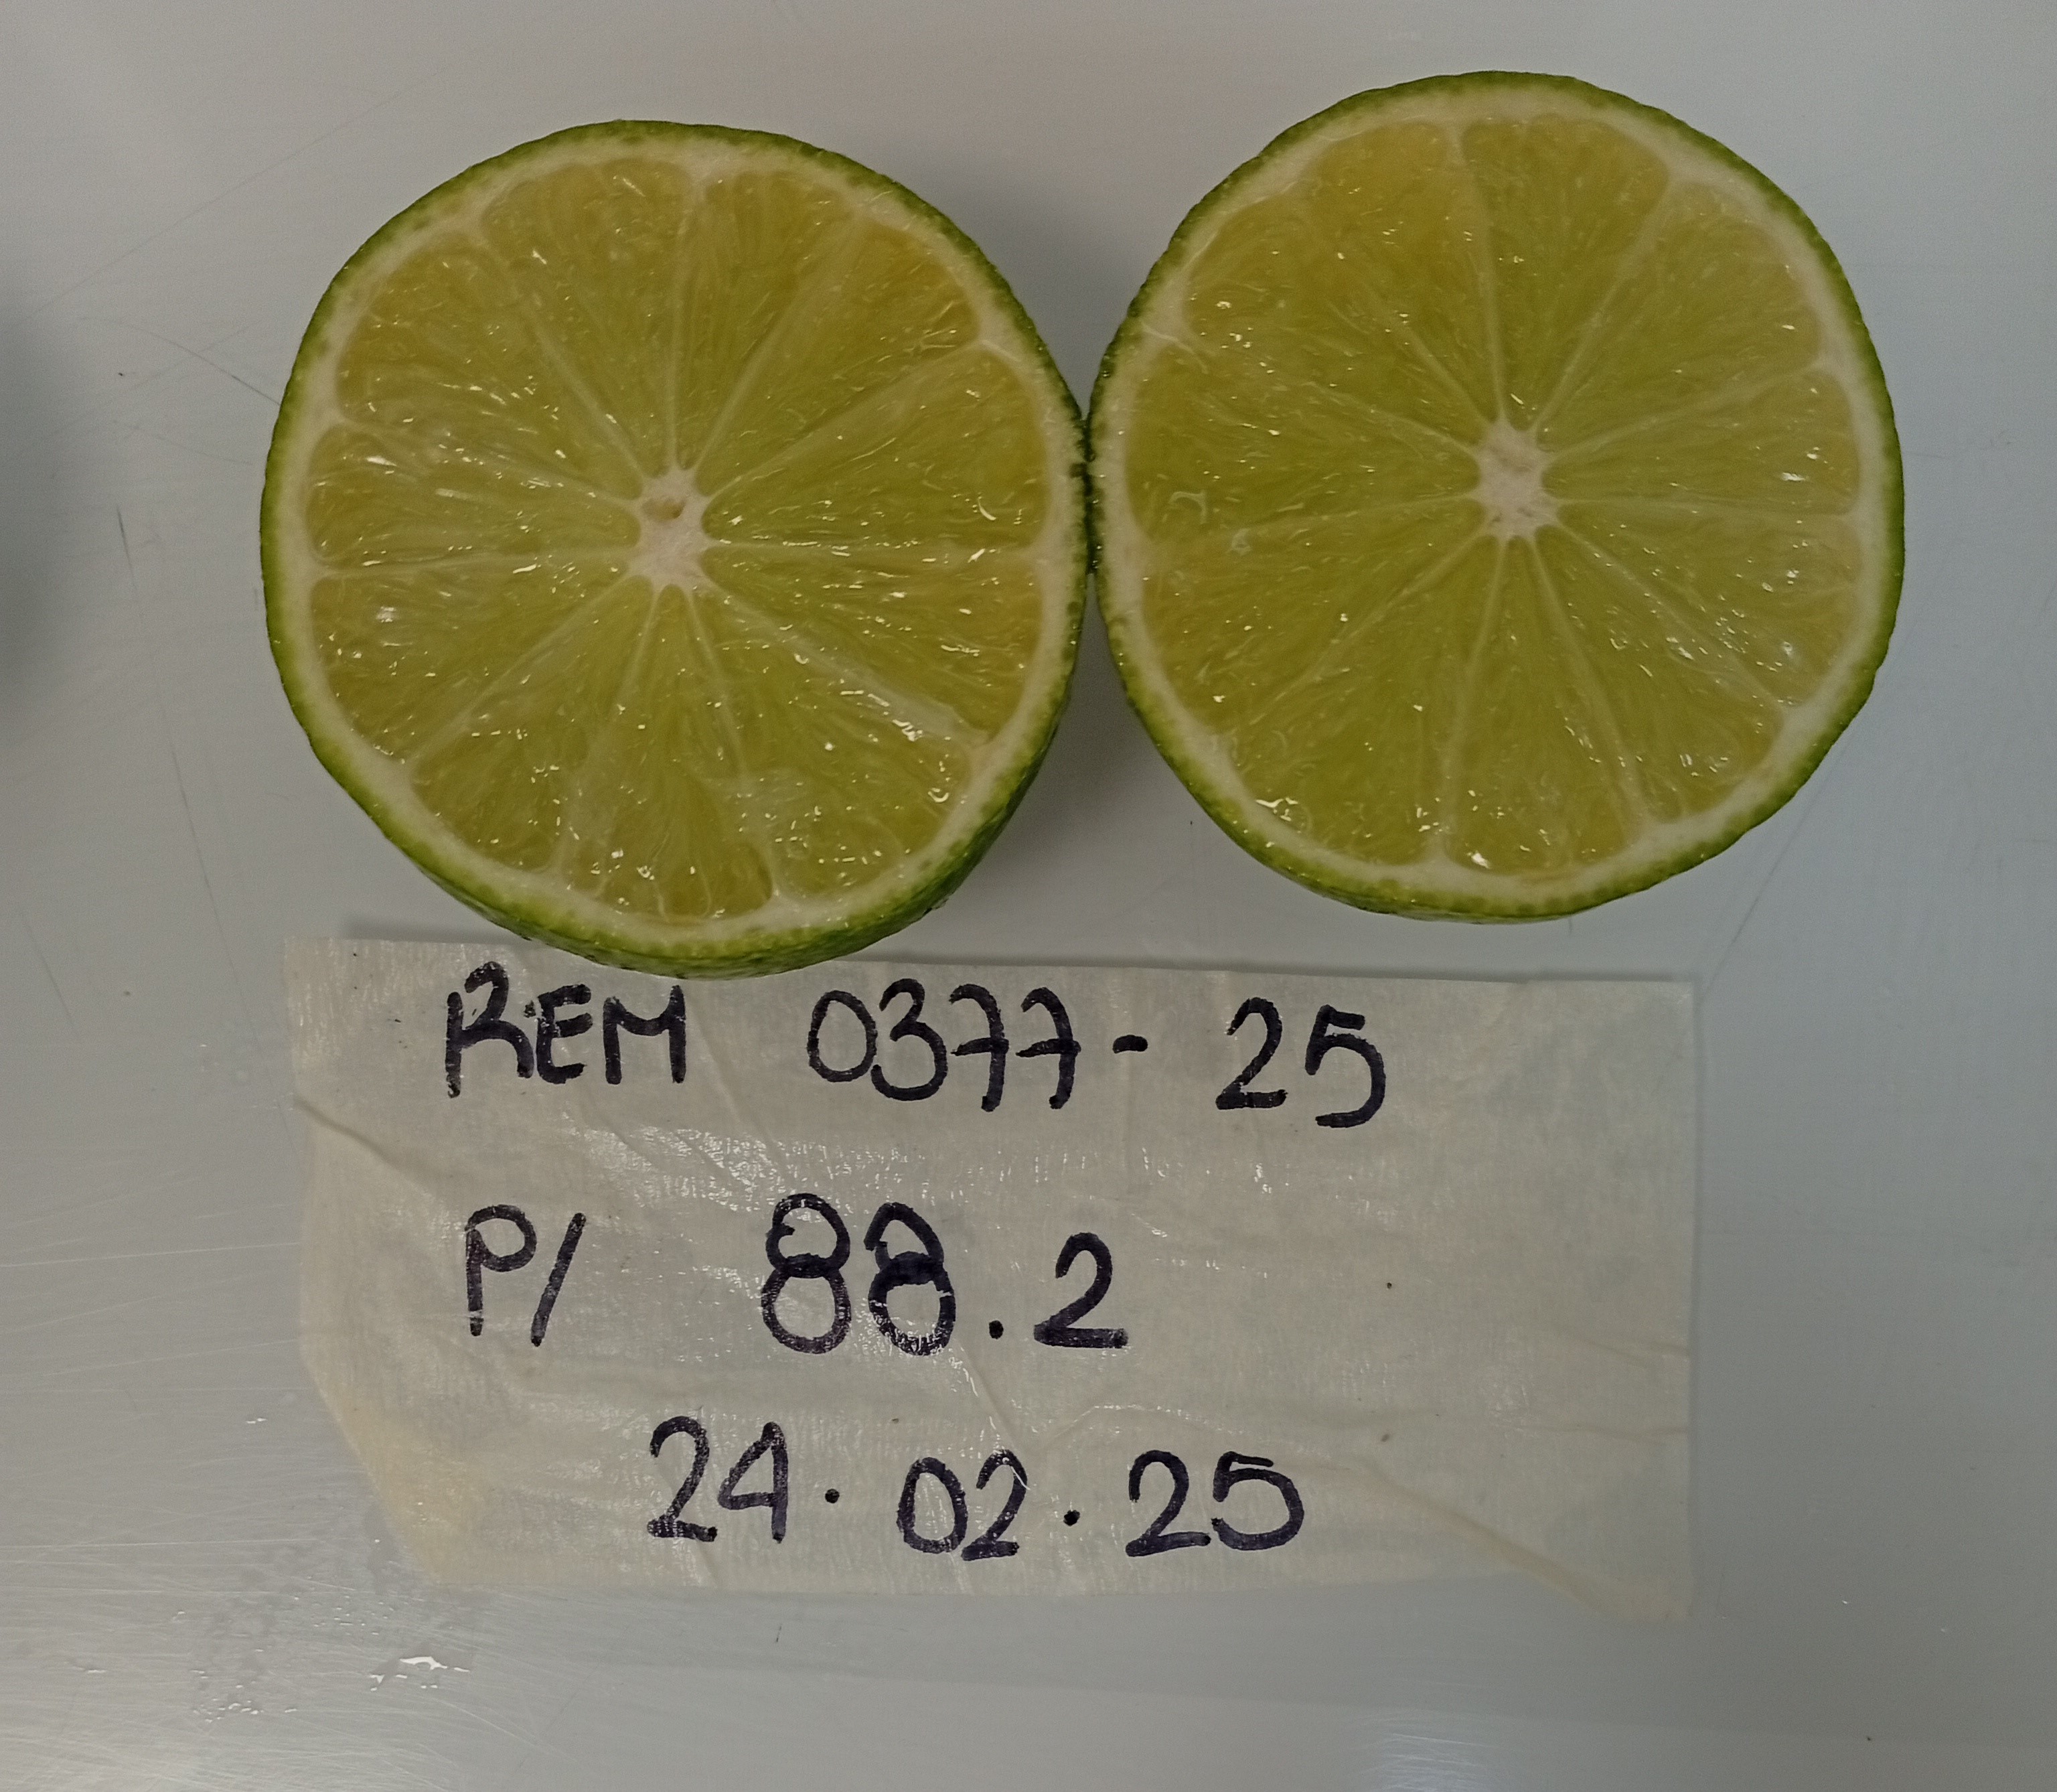 REM 0377-25
P/ 88.2
24.02.25